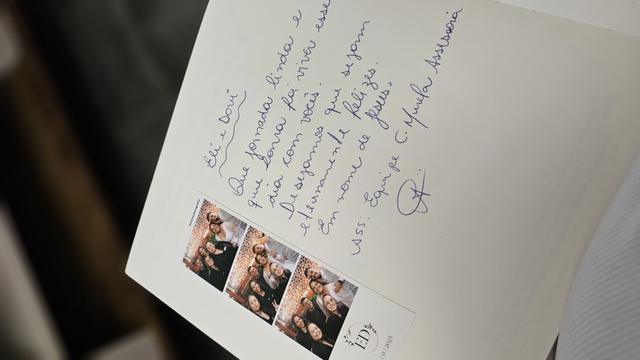 Eli e Davi
Que jornada linda e
que honra foi viver esse
dia com vocês.
Desejamos que sejam
eternamente felizes.
Em nome de Jesus,
Ass: Equipe C. Assessoria
ED